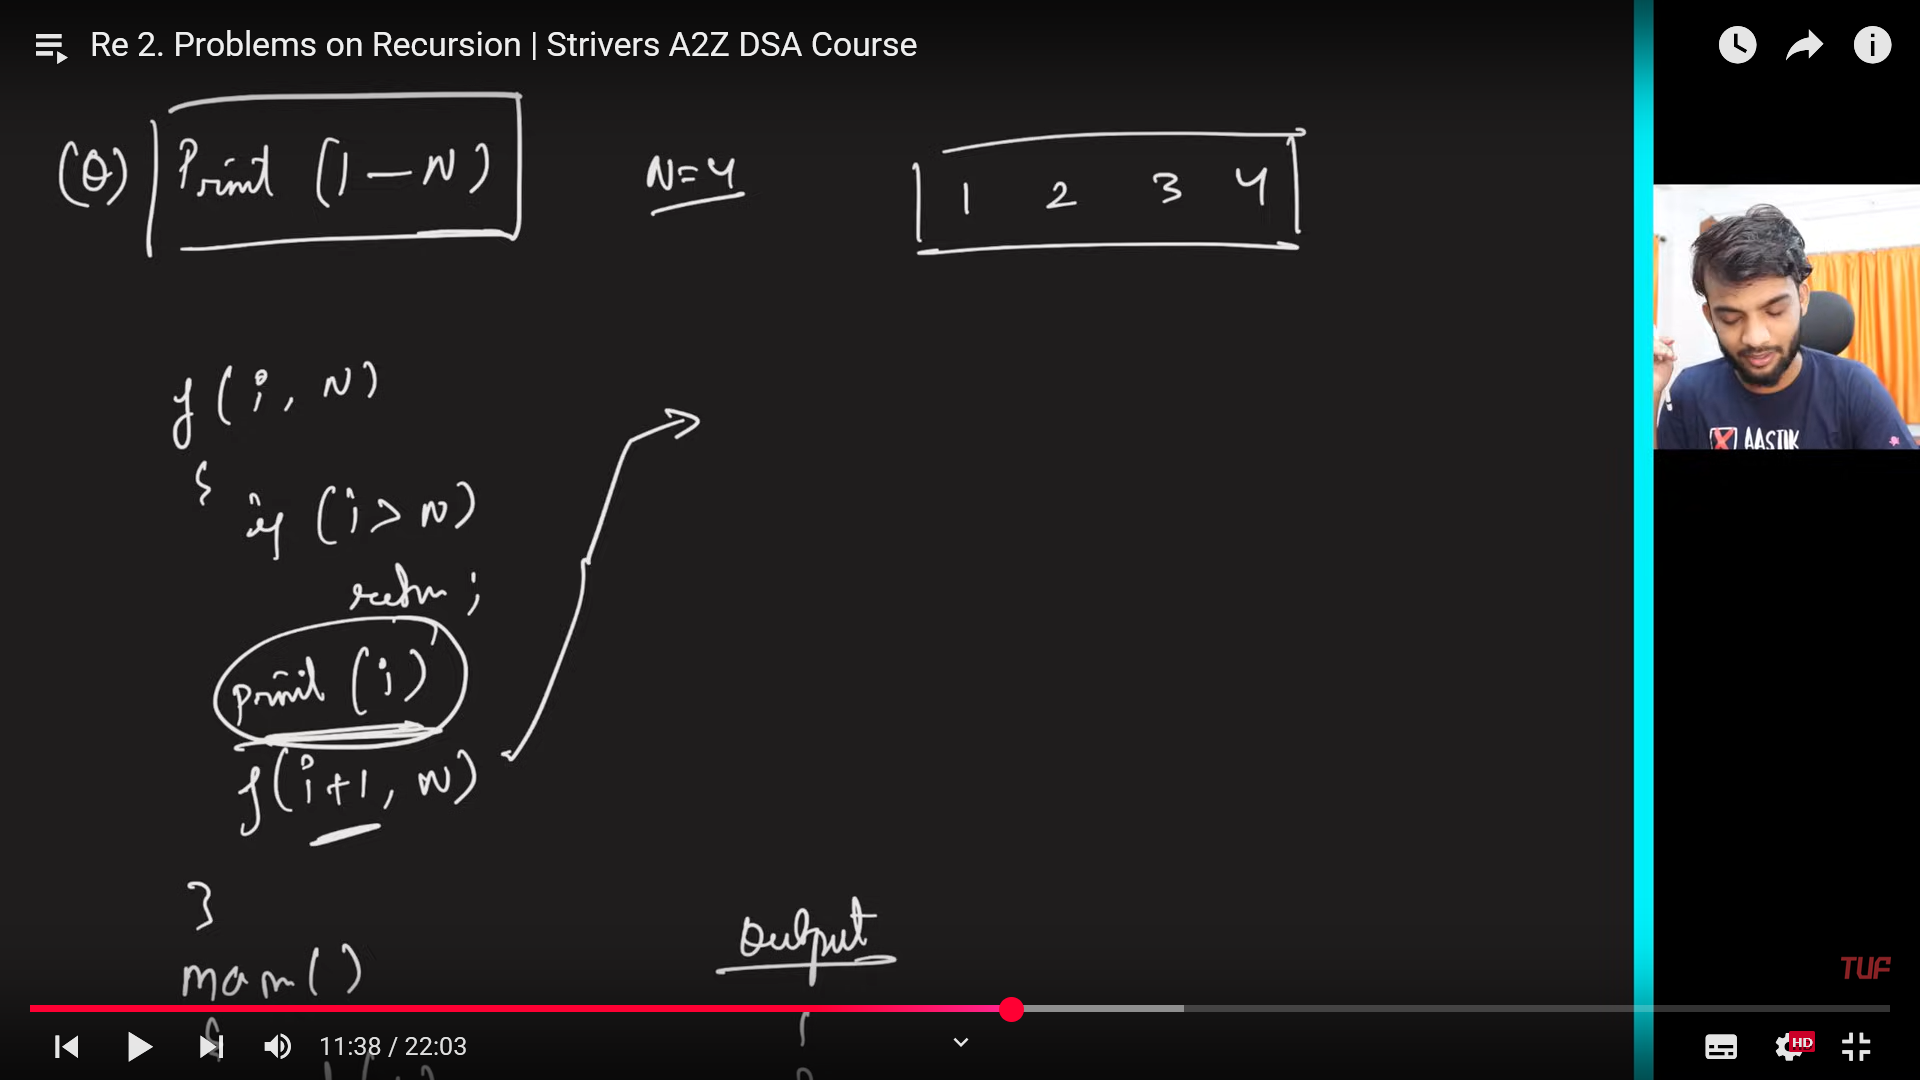 Re 2. Problems on Recursion | Strivers A2Z DSA Course
(Q) Print (1 – N) N=4 1 2 3 4
f(i, N)
{
if (i > N)
return;
print(i)
f(i+1, N)
}
main()
{
Output
1
AASTIK
TUF
11:38 / 22:03
HD